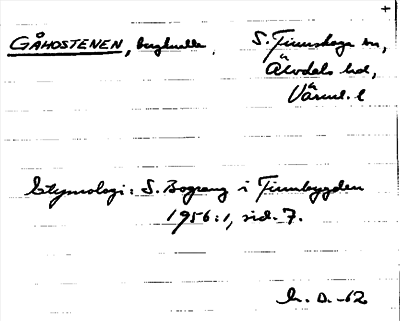 GÅHOSTENEN, berghälla. S. Finnskoga sn,
Älvdals hd,
Värml. l
Etymologi: S. Bograng i Finnbygden
1956:1, sid. 7.
D. -62